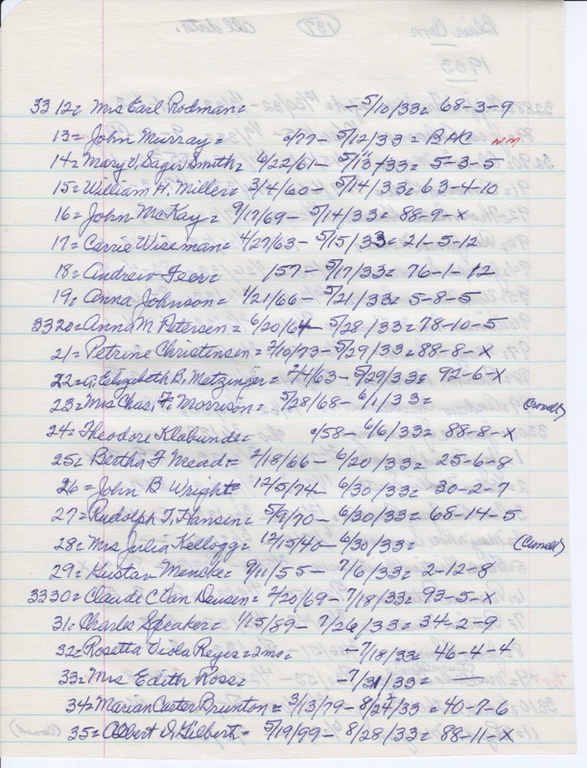 3312= Mrs Earl Rodman= -5/10/33= 68-3-9
13= John Murray= 2/77- 5/12/33= BAC NM
14= Mary V. Sager Smith= 6/22/61- 5/13/33= 5-3-5
15= William H. Miller= 3/4/60- 5/14/33= 63-4-10
16= John McKay= 9/17/69- 5/14/33= 88-9-X
17= Carrie Wiseman= 4/27/63- 5/15/33= 21-5-12
18= Andrew 1/57- 5/17/33= 76-1-12
19= Anna Johnson= 1/21/66- 5/21/33= 5-8-5
3320= Anna M. Petersen= 6/20/64- 5/28/33= 78-10-5
21= Petrine Christinsen= 2/10/73- 5/29/33= 88-8-X
22= Elizabeth B. Metzinger= 2/4/63- 5/29/33= 92-6-X
23= Mrs Chas. F. Morrison= 5/28/68- 6/1/33=
24= Theodore Klabunde= 2/58- 6/6/33= 88-8-X
25= Bertha F Mead= 2/18/66- 6/20/33= 25-6-8
26= John B Wright= 12/5/74- 6/30/33= 30-2-7
27= Rudolph T. Hansen= 5/9/70- 6/30/33= 68-14-5
28= Mrs Julia Kellogg= 12/15/40- 6/30/33=
29= Gustav Mencke= 9/11/55- 7/6/33= 2-12-8
3330= Claude C Van Deusen= 2/20/69- 7/18/33= 93-5-X
31= Charles Speaker= 1/15/89- 7/26/33= 34-2-9
32= Rosetta Viola Reyes= 2mo= -7/18/33= 46-4-4
33= Mrs Edith Ross= -7/31/33= —
34= Marian Carter Brunton= 3/13/79- 8/24/33= 40-7-6
35= Albert D. Gilbert= 5/19/99- 8/28/33= 88-11-X